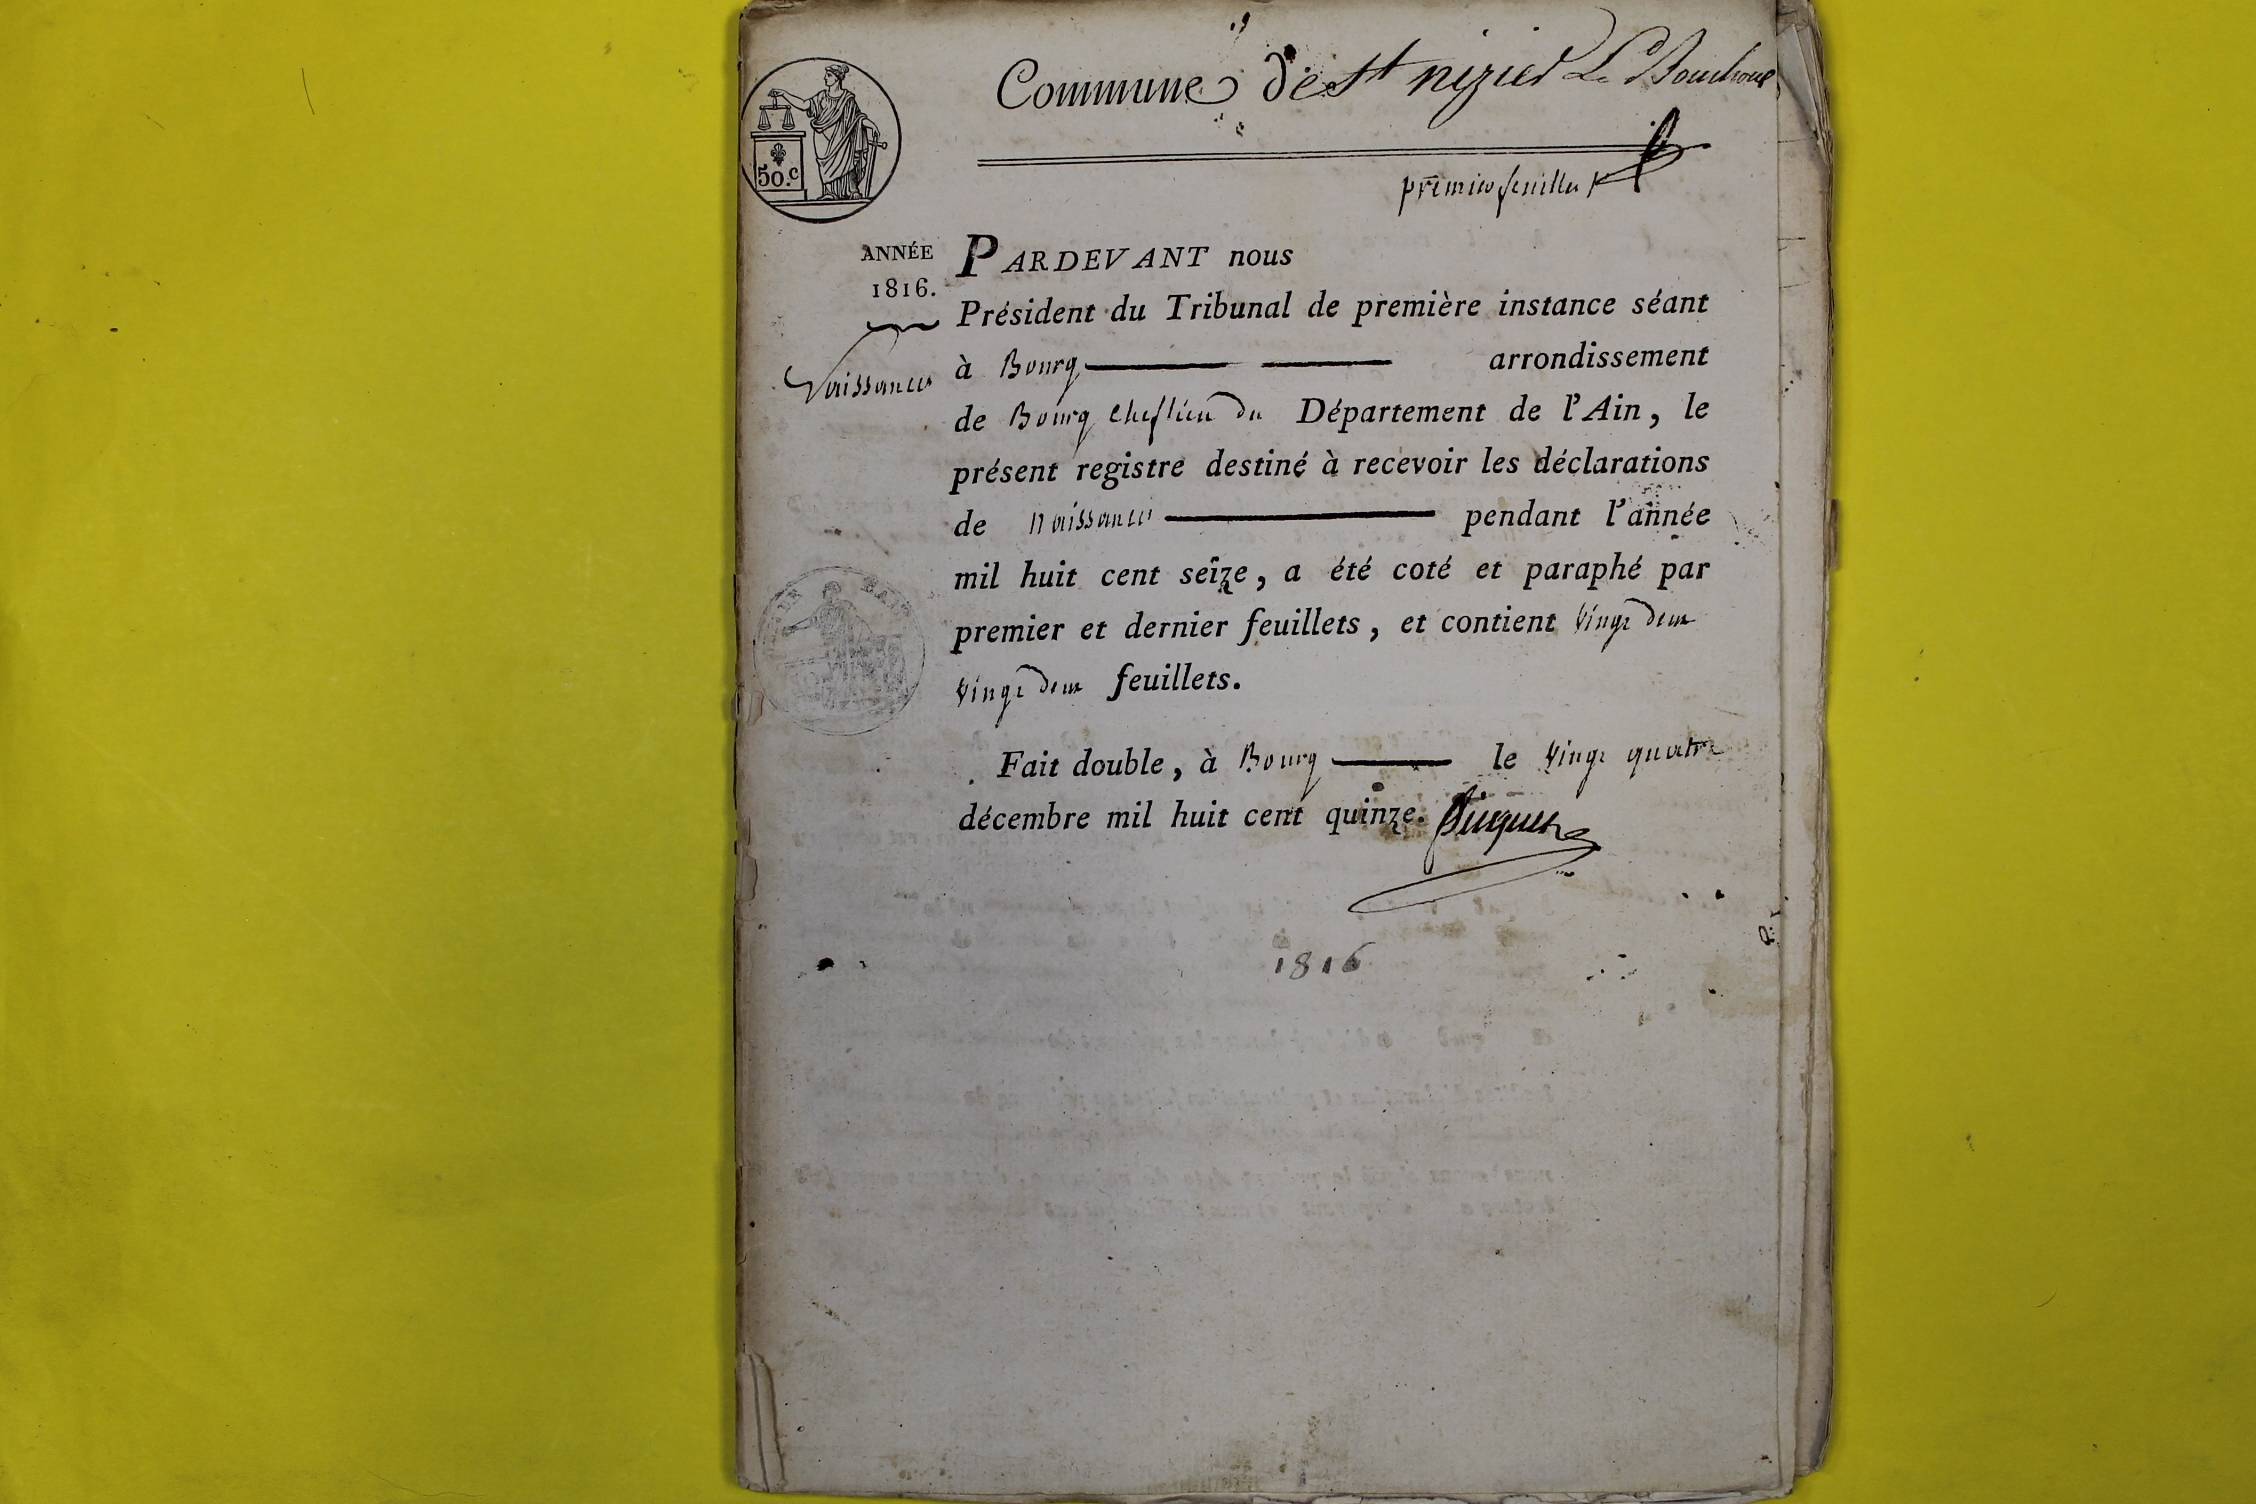 Commune de St nizier Le Bouchoux
50.c
premier feuillet
ANNÉE
1816.
Naissances
PARDEVANT nous
Président du Tribunal de première instance séant
à Bourg arrondissement
de Bourg cheflieu du Département de l'Ain, le
présent registre destiné à recevoir les déclarations
de naissances pendant l'année
mil huit cent seize, a été coté et paraphé par
premier et dernier feuillets, et contient vingt deux
vingt deux feuillets.
Fait double, à Bourg le vingt quatre
décembre mil huit cent quinze.
1816